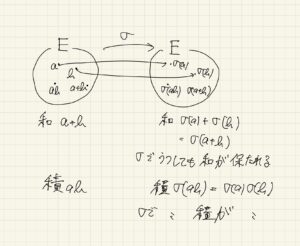 σ
E E
a σ(a)
b σ(b)
ab a+b σ(ab) σ(a+b)
和 a+b 和 σ(a)+σ(b)
= σ(a+b)
σでうつしても和が保たれる
積 ab 積 σ(ab)=σ(a)σ(b)
σで 〃 積が 〃